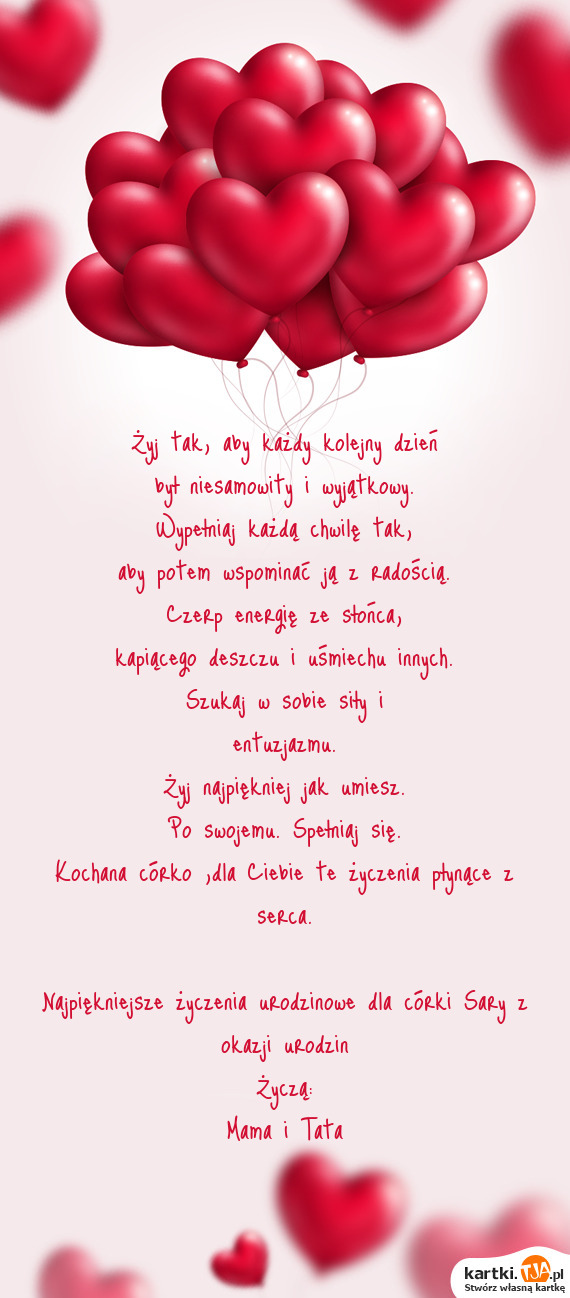 Żyj tak, aby każdy kolejny dzień
był niesamowity i wyjątkowy.
Wypełniaj każdą chwilę tak,
aby potem wspominać ją z radością.
Czerp energię ze słońca,
kapiącego deszczu i uśmiechu innych.
Szukaj w sobie siły i
entuzjazmu.
Żyj najpiękniej jak umiesz.
Po swojemu. Spełniaj się.
Kochana córko ,dla Ciebie te życzenia płynące z
serca.
Najpiękniejsze życzenia urodzinowe dla córki Sary z
okazji urodzin
Życzą:
Mama i Tata
kartki.TJA.pl
Stwórz własną kartkę